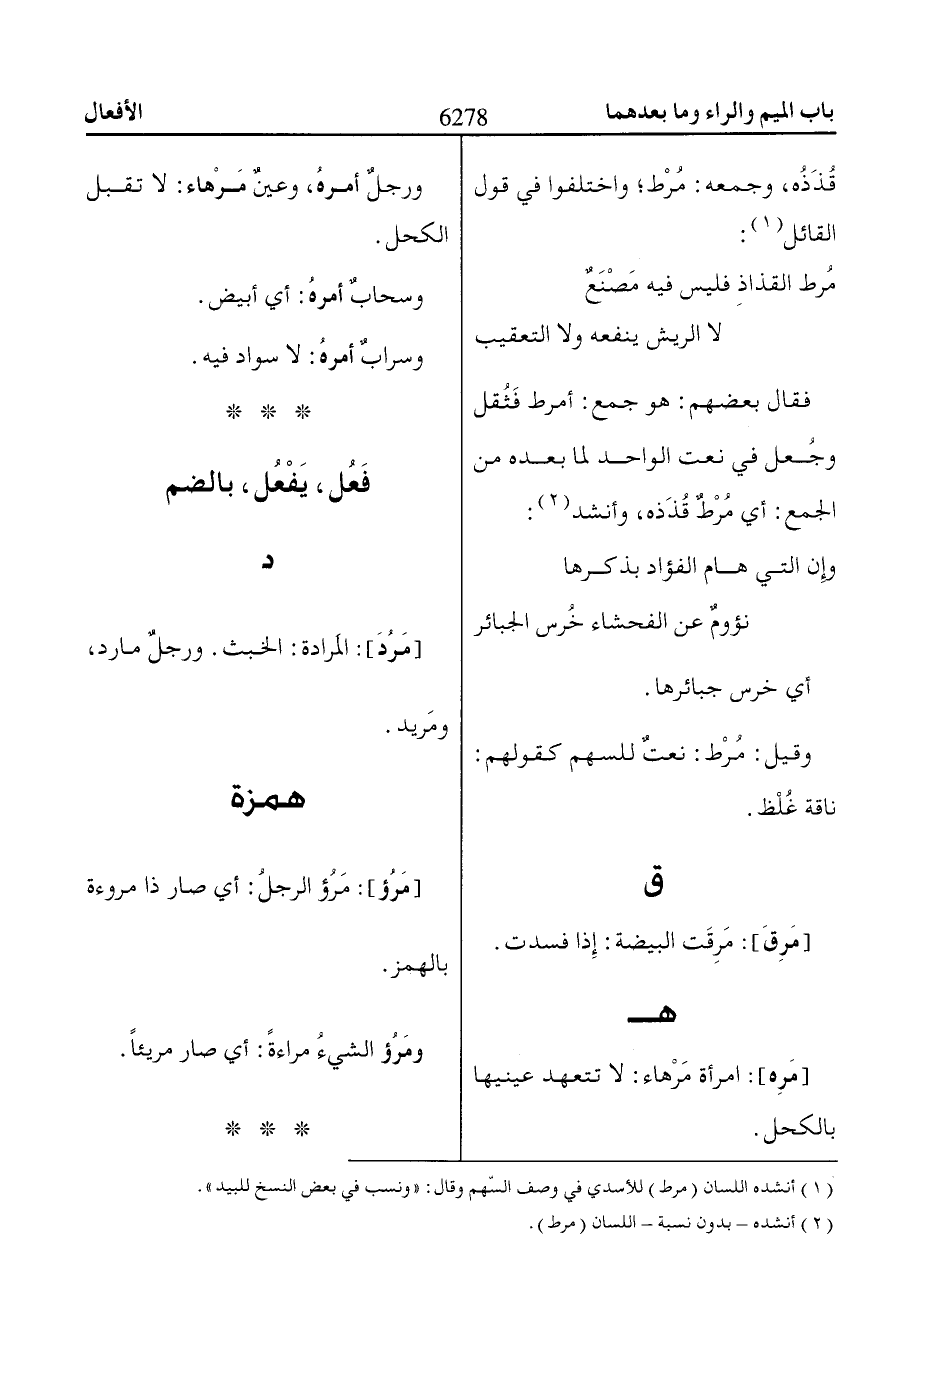 باب الميم والراء وما بعدهما
6278
الأفعال
قُذَذُه، وجمعه: مُرْط؛ واختلفوا في قول
القائل(١):
مُرط القذاذِ فليس فيه مَصْنَعٌ
لا الريش ينفعه ولا التعقيب
فقال بعضهم: هو جمع: أمرط فَثُقل
وجُعل في نعت الواحد لما بعده من
الجمع: أي مُرْطٌ قُذَذه، وأنشد(٢):
وإن التي هام الفؤاد بذكرها
نؤومٌ عن الفحشاء خُرس الجبائر
أي خرس جبائرها.
وقيل: مُرْط: نعتٌ للسهم كقولهم:
ناقة غُلْظ.
ق
[مَرِقَ]: مَرِقَت البيضة: إذا فسدت.
هـ
[مَرِه]: امرأة مَرْهاء: لا تتعهد عينيها
بالكحل.
ورجلٌ أمرهُ، وعينٌ مَرْهاء: لا تقبل
الكحل.
وسحابٌ أمرهُ: أي أبيض.
وسرابٌ أمرهُ: لا سواد فيه.
* * *
فَعُل، يَفْعُل، بالضم
د
[مَرُدَ]: المَرادة: الخبث. ورجلٌ مارد،
ومَريد.
همزة
[مَرُؤ]: مَرُؤ الرجلُ: أي صار ذا مروءة
بالهمز.
ومَرُؤ الشيءُ مراءةً: أي صار مريئاً.
* * *
(١) أنشده اللسان (مرط) للأسدي في وصف السّهم وقال: «ونسب في بعض النسخ للبيد».
(٢) أنشده – بدون نسبة – اللسان (مرط).